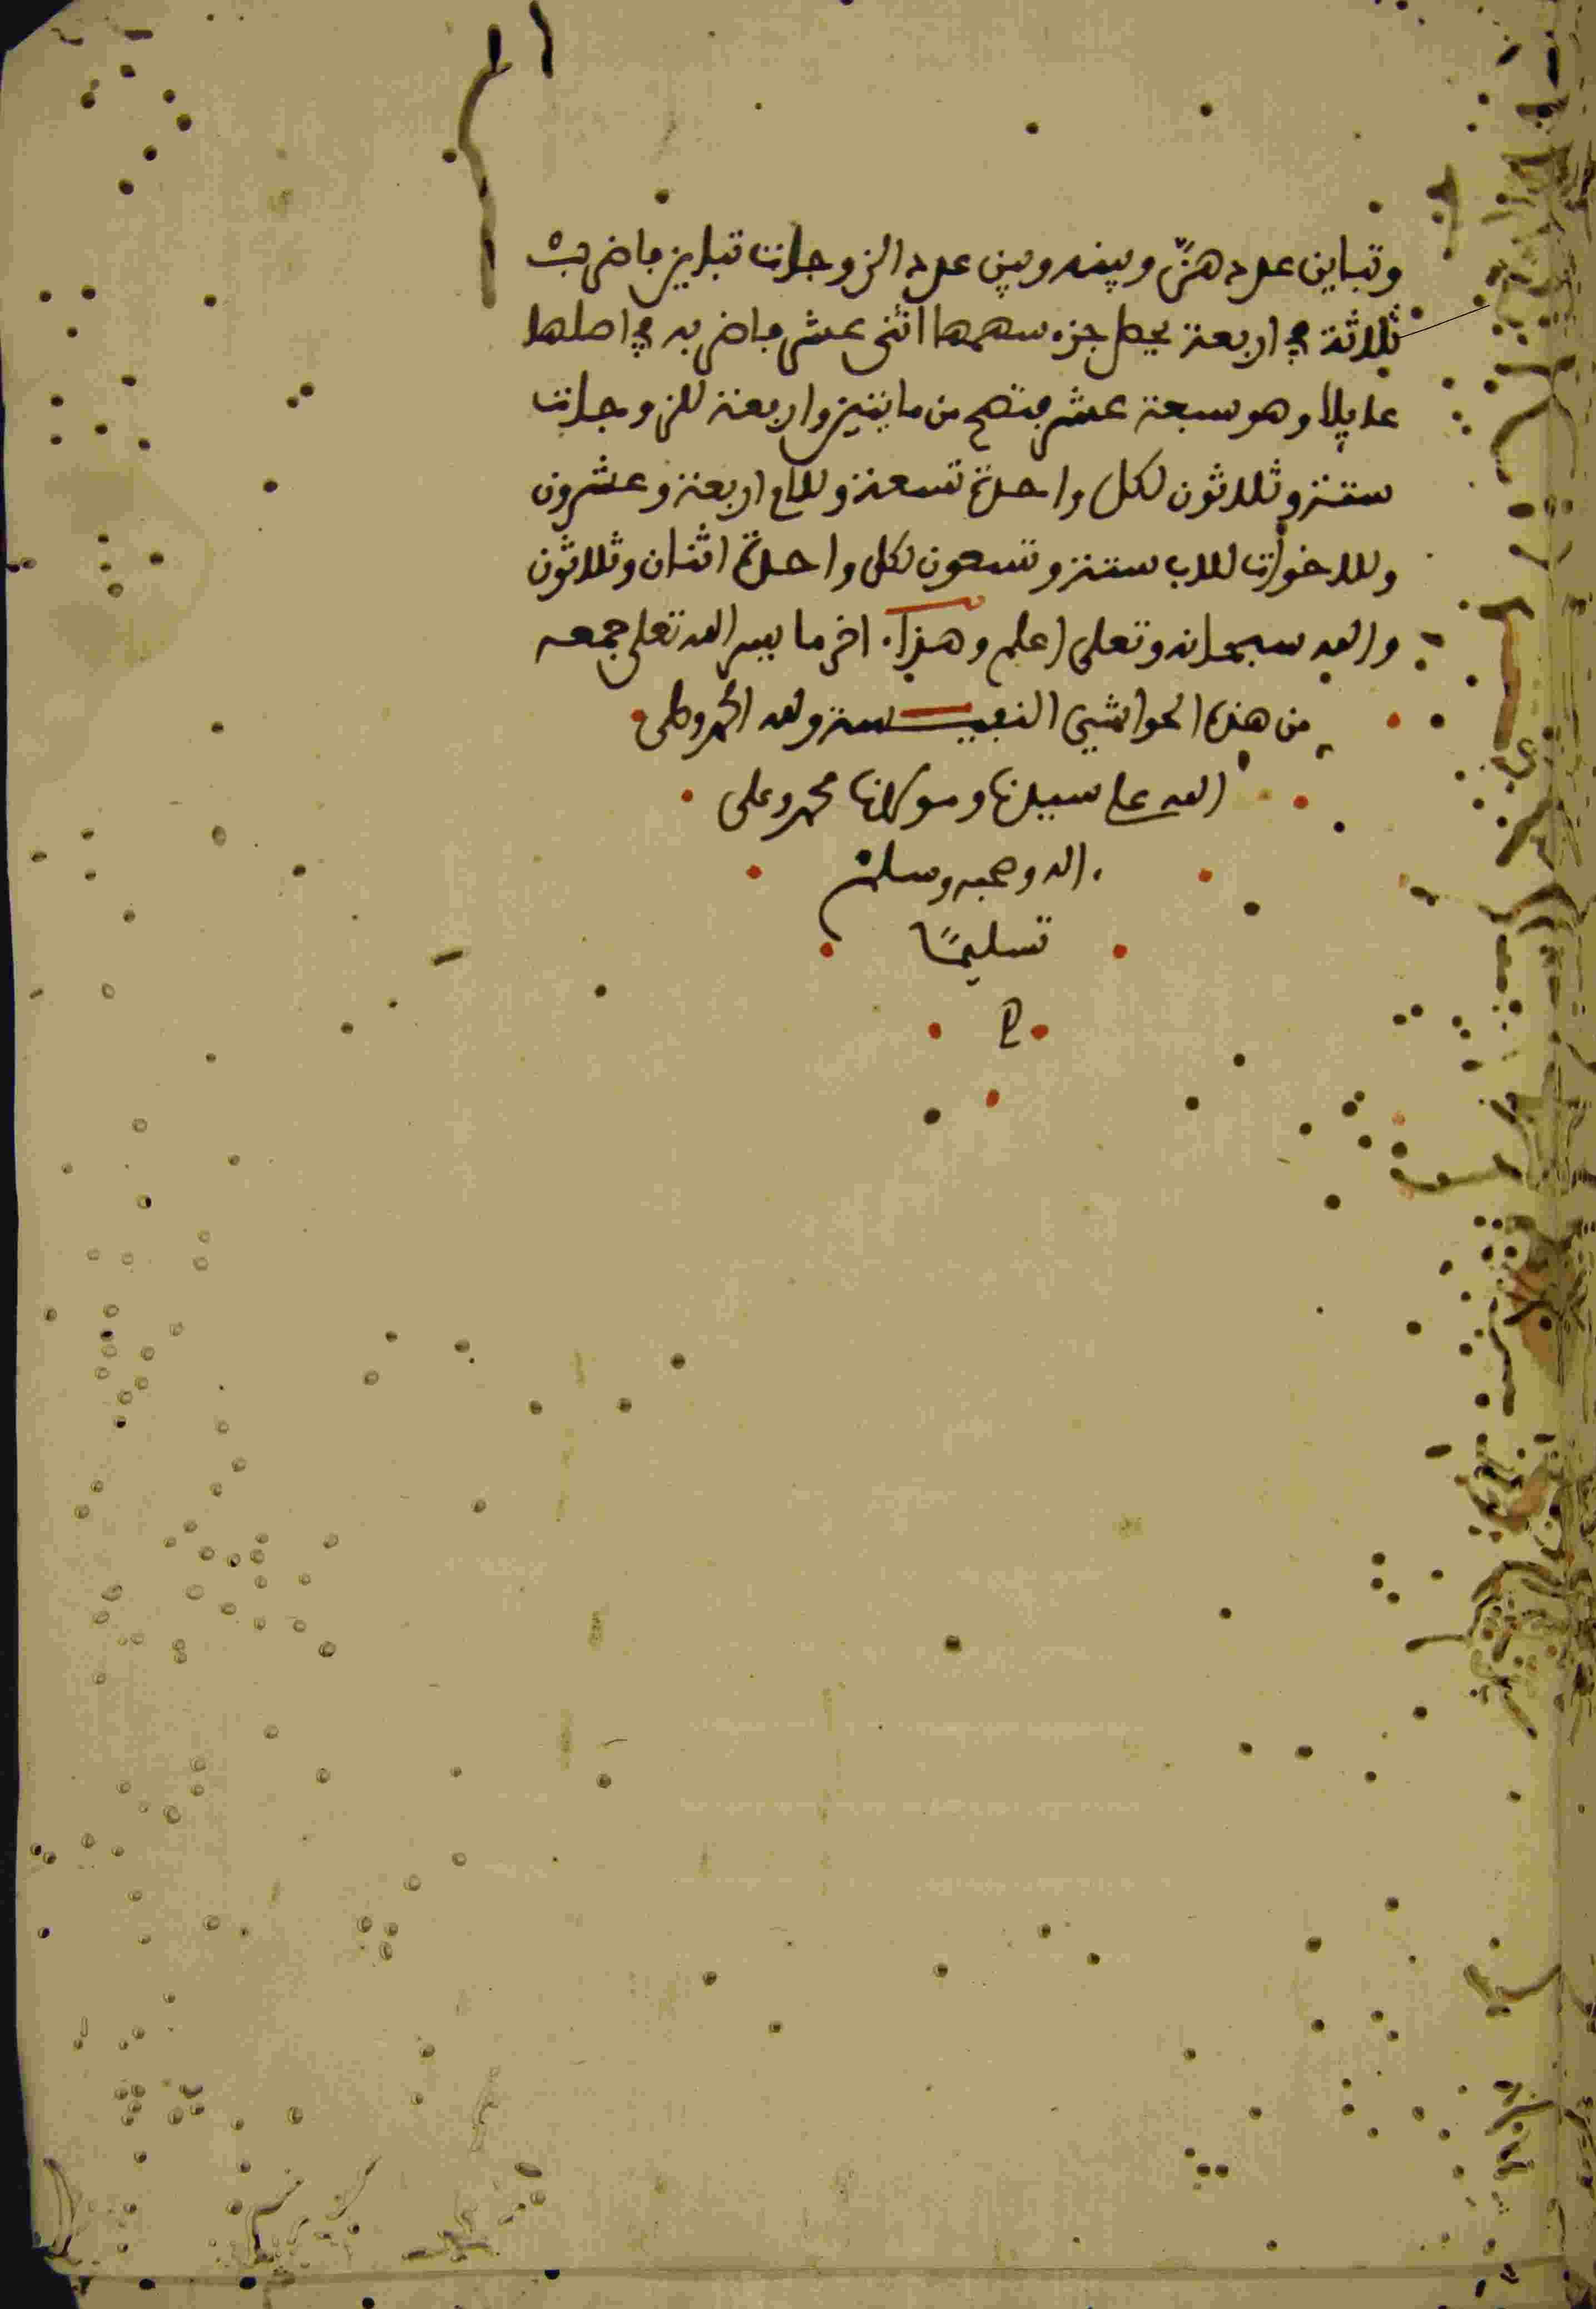 وتباين عددهن وبينه وبين عدد الزوجات تباين فاضرب
ثلاثة في اربعة يحصل جزء سهمها اثنى عشر فاضربه في اصلها
عايلا وهو سبعة عشر فتصح من مايتين واربعة للزوجات
ستة وثلاثون لكل واحدة تسعة وللام اربعة وعشرون
وللاخوات للاب ستة وتسعون لكل واحدة اثنان وثلاثون
والله سبحانه وتعلى اعلم وهذا اخر ما يسر الله تعلى جمعه
من هذه الحواشي النفيسة ولله الحمد وصلى
الله على سيدنا ومولانا محمد وعلى
اله وصحبه وسلم
تسليمًا